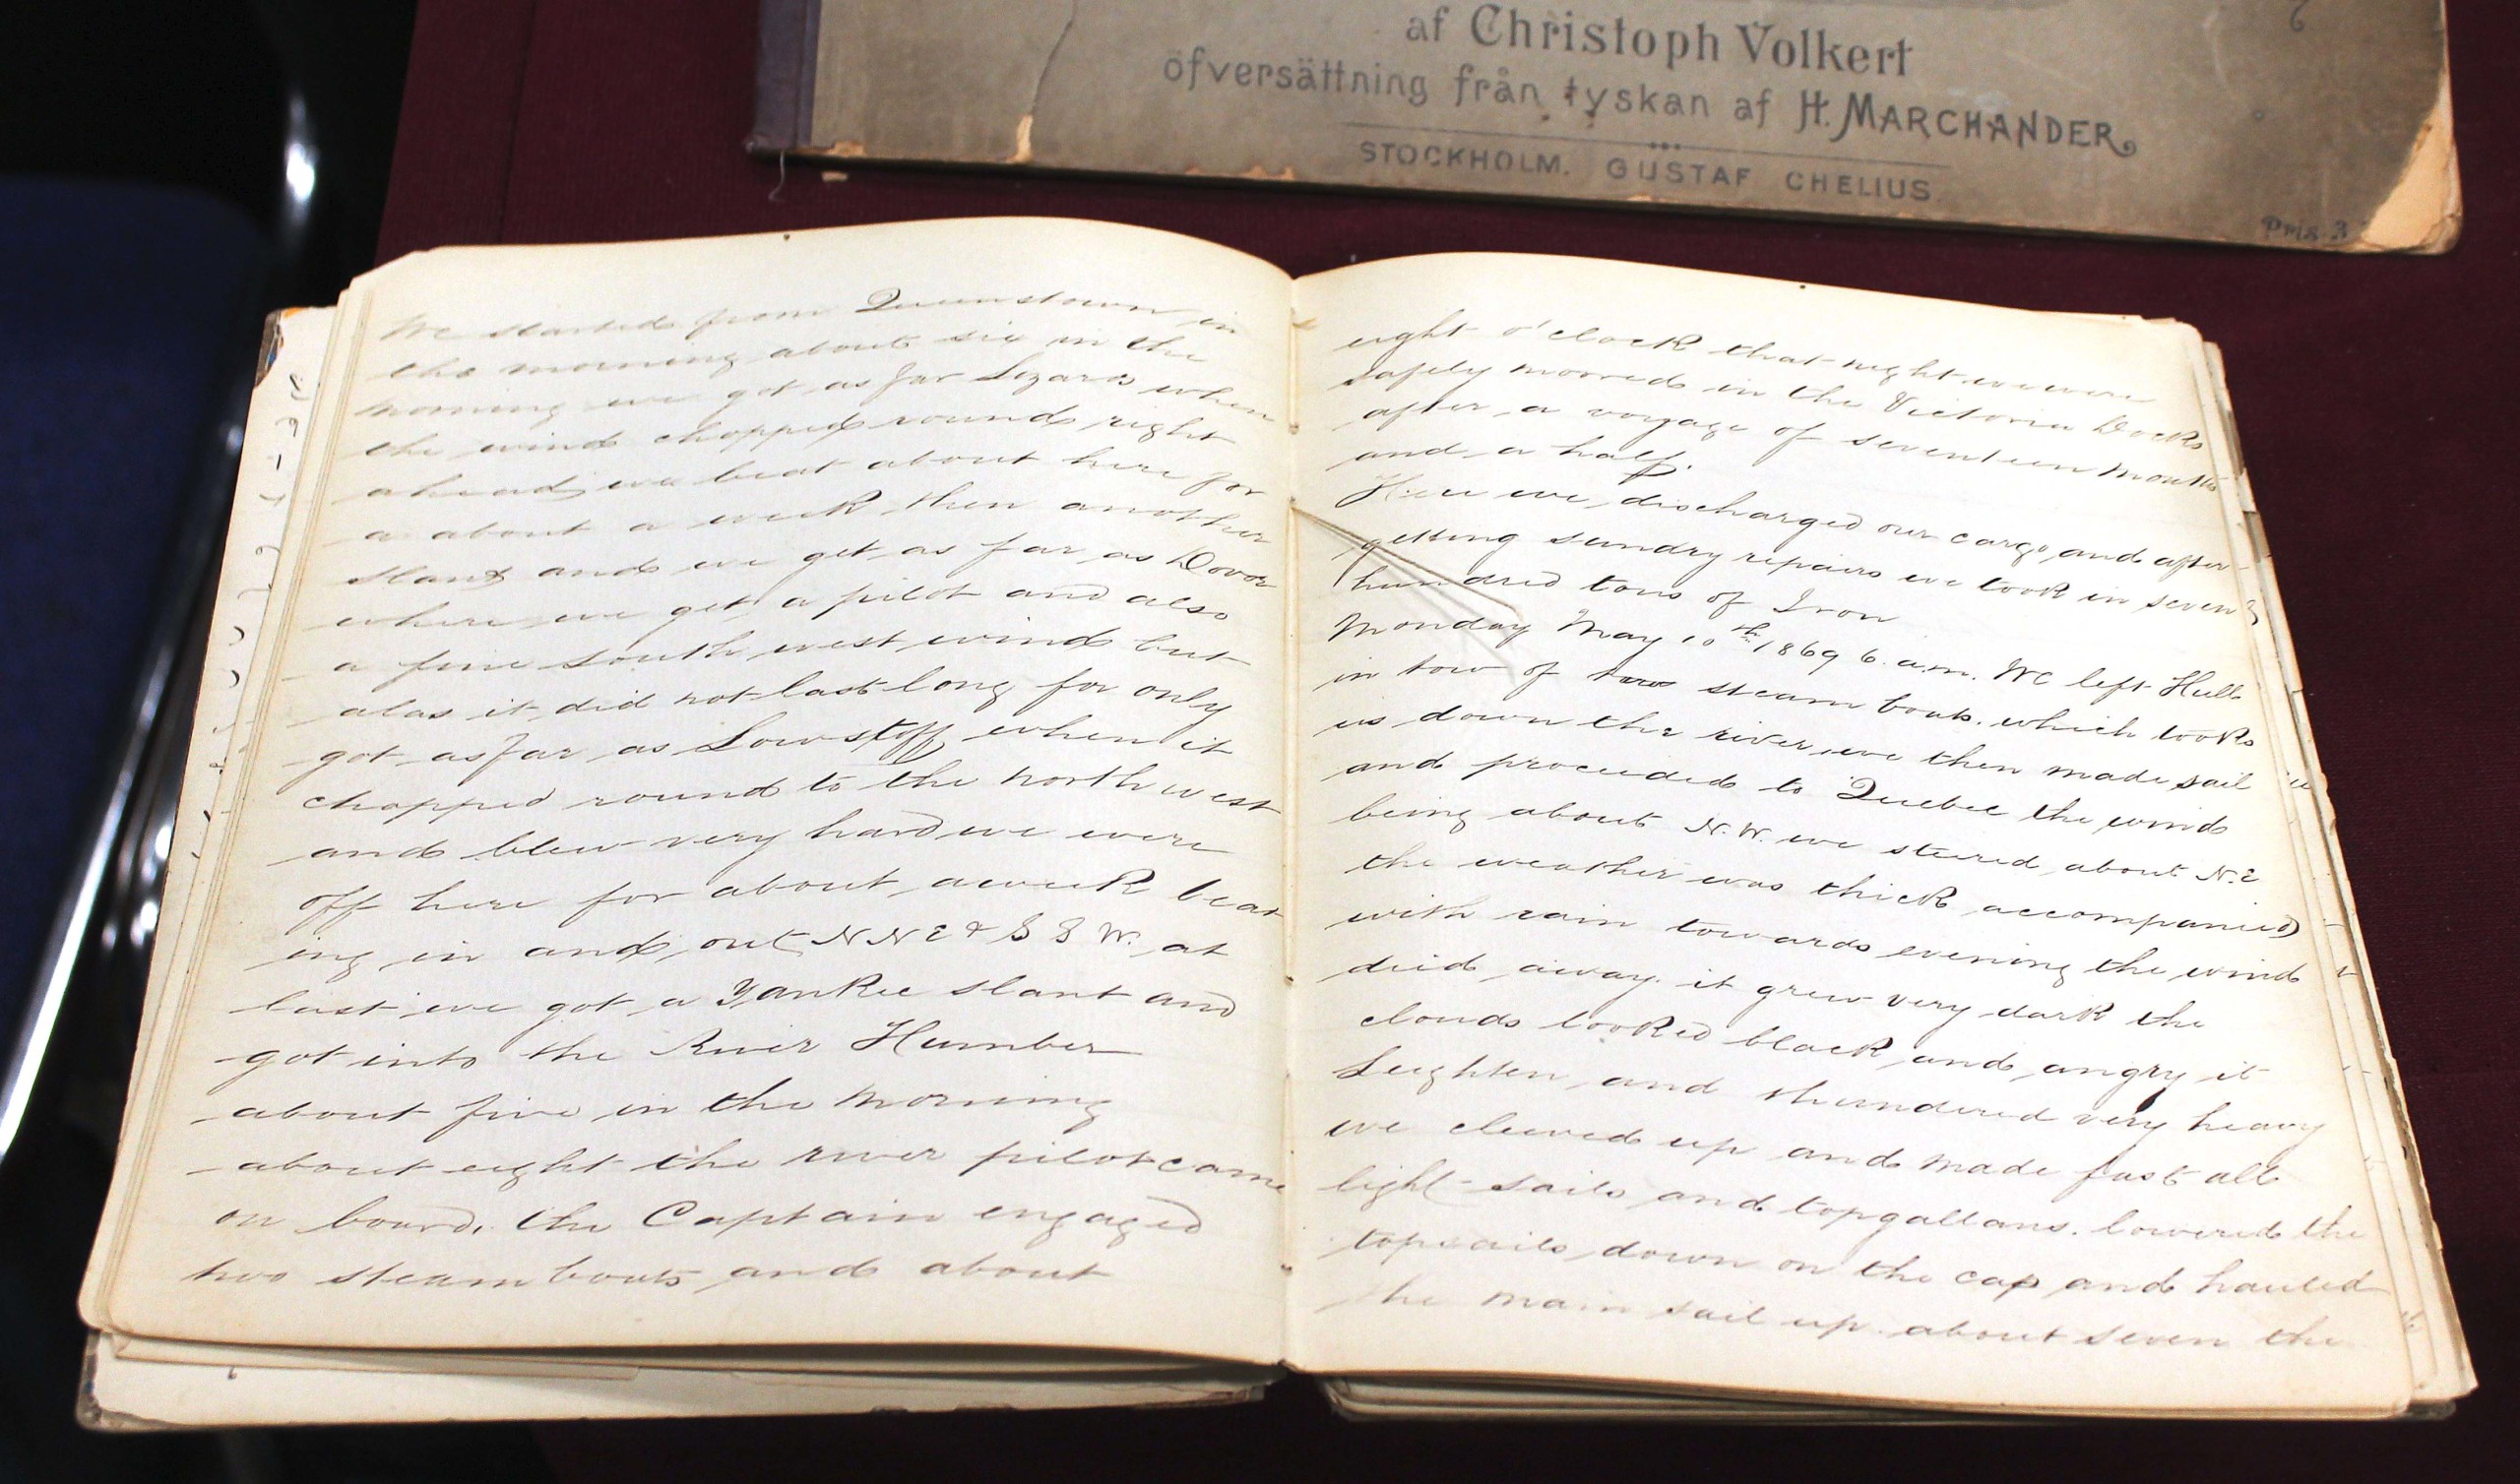 af Christoph Volkert
öfversättning från tyskan af H. MARCHANDER
STOCKHOLM. GUSTAF CHELIUS
Pris 3
We started from Queenstown in
the morning about six in the
morning we got as far Lizard when
the wind chopped round right
ahead, we beat about here for
a about a week then another
slant and we get as far as Dover
where we get a pilot and also
a fine south west wind but
alas it did not last long for only
got as far as Lowstoff when it
chopped round to the north west
and blew very hard we were
off here for about a week beat
ing in and out NNE & SSW. at
last we got a Yankee slant and
got into the River Humber
about five in the morning
about eight the river pilot came
on board, the Captain engaged
two steam boats and about
eight o'clock that night we were
safely moored in the Victoria Docks
after a voyage of seventeen months
and a half.
Here we discharged our cargo and after
getting sundry repairs we took in seven
hundred tons of Iron
Monday May 10th 1869 6. a.m. We left Hull
in tow of two steam boats. which took
us down the river, we then made sail
and proceeded to Quebec the wind
being about N.W. we steered about N.E
the weather was thick accompanied
with rain towards evening the wind
died away. it grew very dark the
clouds looked black and angry it
Leighten and thundered very heavy
we clewed up and made fast all
light sails and topgallans. lowered the
topsails down on the cap and hauled
the main sail up. about seven the